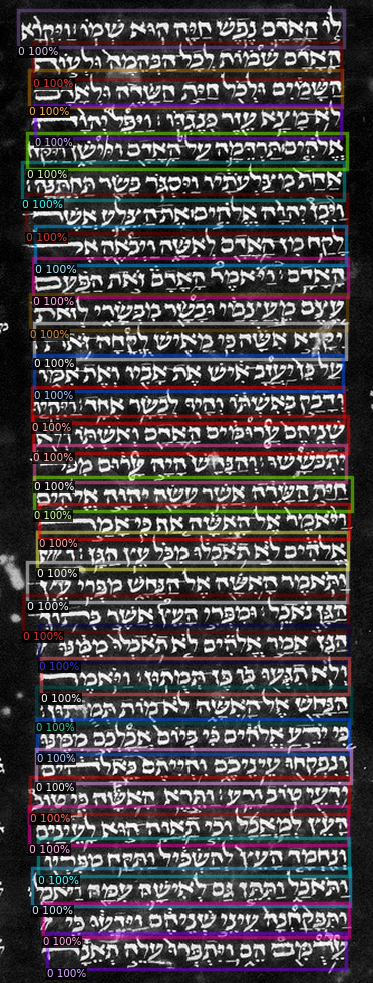 לו האדם נפש חיה הוא שמו ויקרא
האדם שמות לכל הבהמה ולעוף
השמים ולכל חית השדה ולאדם
לא מצא עזר כנגדו ויפל יהוה
אלהים תרדמה על האדם ויישן ויקח
אחת מצלעתיו ויסגר בשר תחתנה
ויבן יהוה אלהים את הצלע אשר
לקח מן האדם לאשה ויבאה אל
האדם ויאמר האדם זאת הפעם
עצם מעצמי ובשר מבשרי לזאת
יקרא אשה כי מאיש לקחה זאת
על כן יעזב איש את אביו ואת אמו
ודבק באשתו והיו לבשר אחד ויהיו
שניהם ערומים האדם ואשתו ולא
יתבששו והנחש היה ערום מכל
חית השדה אשר עשה יהוה אלהים
ויאמר אל האשה אף כי אמר
אלהים לא תאכלו מכל עץ הגן
ותאמר האשה אל הנחש מפרי עץ
הגן נאכל ומפרי העץ אשר בתוך
הגן אמר אלהים לא תאכלו ממנו
ולא תגעו בו פן תמתון ויאמר
הנחש אל האשה לא מות תמתון
כי ידע אלהים כי ביום אכלכם ממנו
ונפקחו עיניכם והייתם כאלהים
ידעי טוב ורע ותרא האשה כי טוב
העץ למאכל וכי תאוה הוא לעינים
ונחמד העץ להשכיל ותקח מפריו
ותאכל ותתן גם לאישה עמה ויאכל
ותפקחנה עיני שניהם וידעו כי
ערומם הם ויתפרו עלה תאנה